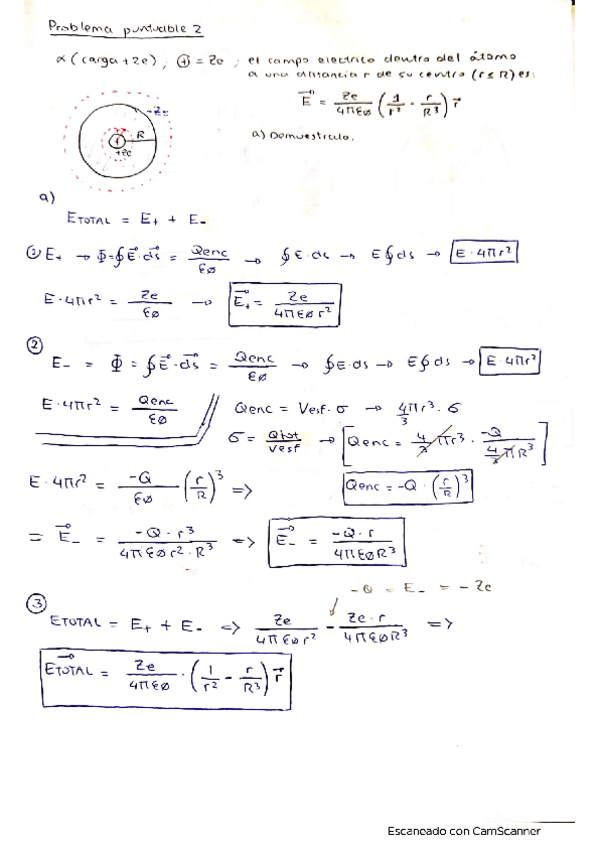 Problema puntuable 2
α (carga +2e) ; ⊕ = Ze ; el campo electrico dentro del átomo
a una distancia r de su centro (r ≤ R) es:
E⃗ = Ze/4πε0 (1/r² - r/R³) r⃗
-Ze
R
+Ze
a) Demuestralo.
a)
ETOTAL = E+ + E-
① E+ → Φ = ∮E⃗·ds⃗ = Qenc/ε0 → ∮E·ds → E∮ds → E·4πr²
E·4πr² = Ze/ε0 → E⃗+ = Ze/4πε0r²
②
E- = Φ = ∮E⃗·ds⃗ = Qenc/ε0 → ∮E·ds → E∮ds → E·4πr²
E·4πr² = Qenc/ε0 // Qenc = Vesf·σ → 4/3 πr³·σ
σ = Qtot/Vesf → [Qenc = 4/3 πr³ · -Q/(4/3 πR³)]
E·4πr² = -Q/ε0 (r/R)³ => Qenc = -Q·(r/R)³
= E⃗- = -Q·r³/4πε0r²·R³ => E⃗- = -Q·r/4πε0R³
-Q = E- = -Ze
③
ETOTAL = E+ + E- => Ze/4πε0r² - Ze·r/4πε0R³ =>
E⃗TOTAL = Ze/4πε0 · (1/r² - r/R³) r⃗
Escaneado con CamScanner